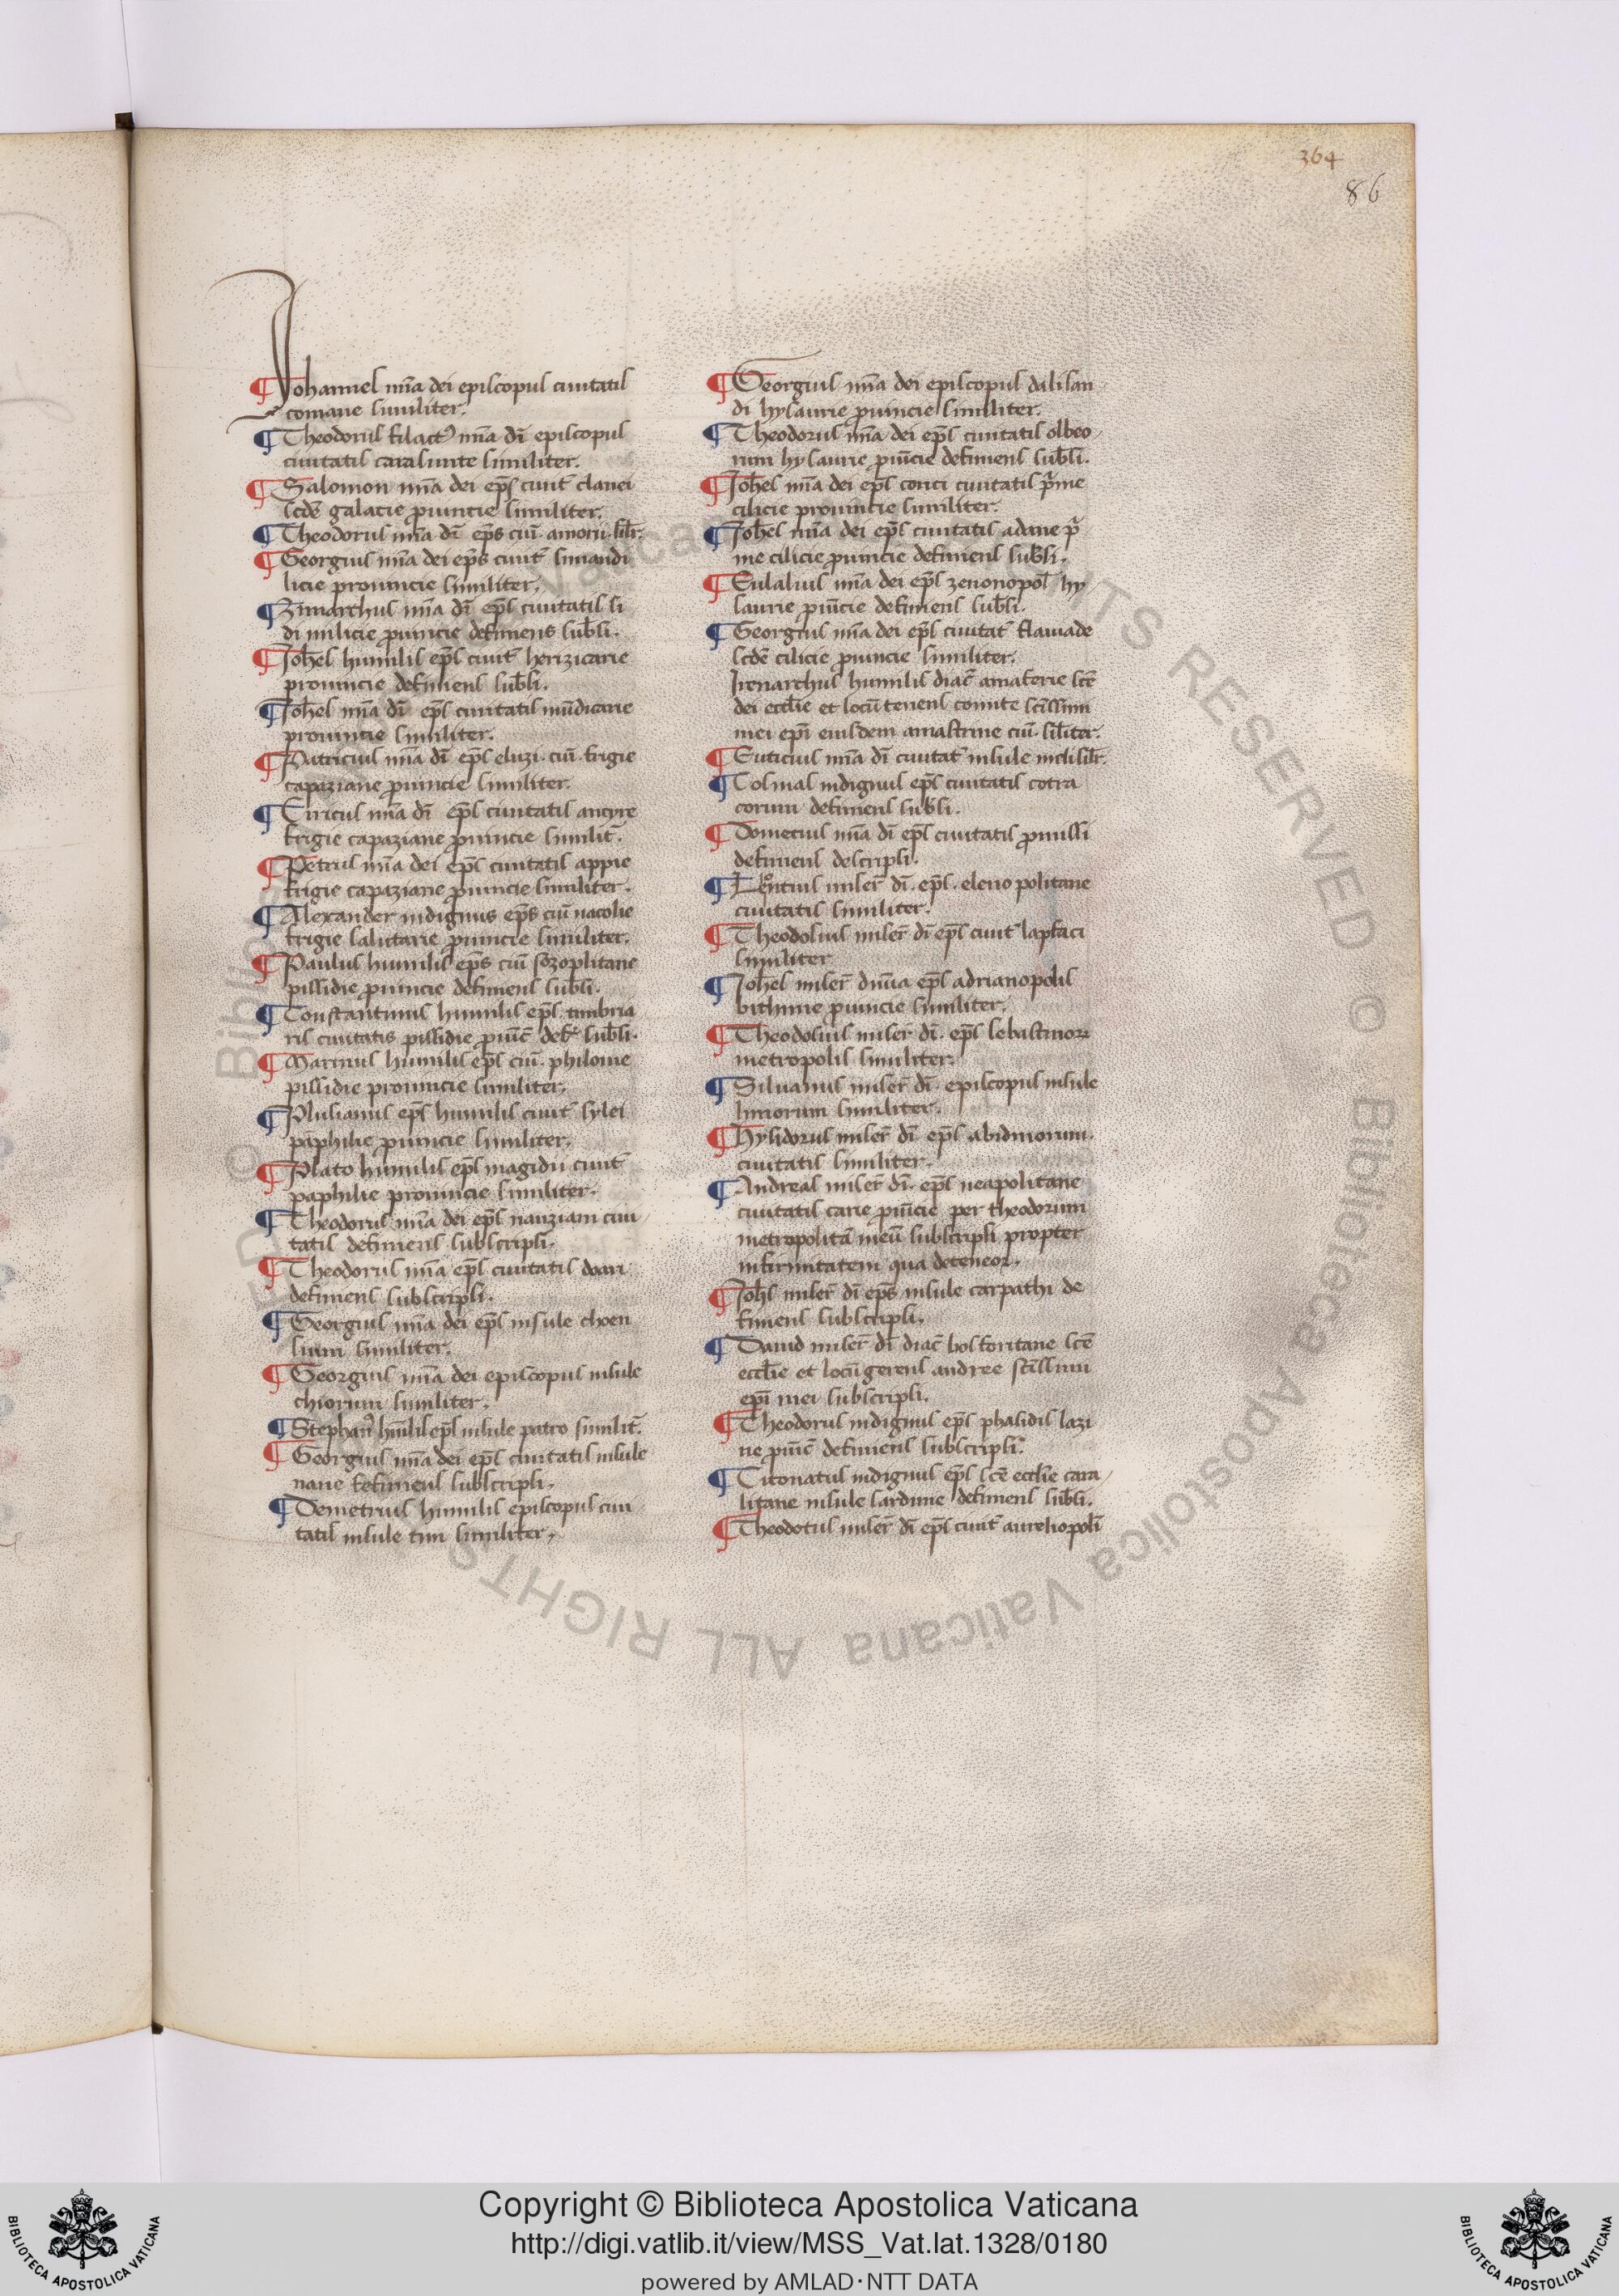 364
86
¶ Johannes mīa dei episcopus ciuitatis
comane similiter.
¶ Theodorus filact⁹ mīa dī episcopus
ciuitatis caralunte similiter.
¶ Salomon mīa dei ep̄s ciuit̄ clanei
scd̄e galacie prouincie similiter.
¶ Theodorus mīa dī ep̄s ciuī. amorii. silr̄.
¶ Georgius mīa dei ep̄s ciuit̄ simandi
licie prouincie similiter.
¶ Zimarchus mīa dī ep̄s ciuitatis si
di milicie prouincie definiens subs̄i.
¶ Joh̄es humilis ep̄s ciuit̄ herizicarie
prouincie definiens subs̄i.
¶ Joh̄es mīa dī ep̄s ciuitatis mūdicarie
prouincie similiter.
¶ Patricius mīa dī ep̄s eluzi. ciuī. frigie
capaziane prouincie similiter.
¶ Ciricus mīa dī ep̄s ciuitatis ancyre
frigie capaziane prouincie similit̄.
¶ Petrus mīa dei ep̄s ciuitatis appie
frigie capaziane prouincie similiter.
¶ Alexander indignus ep̄s ciuī nacolie
frigie salutarie prouincie similiter.
¶ Paulus humilis ep̄s ciuī sozoplitane
pissidie prouincie definiens subs̄i.
¶ Constantinus humilis ep̄s. timbria
ris ciuitatis pissidie prouīc̄ def̄ subs̄i.
¶ Marinus humilis ep̄s ciuī. philome
pissidie prouincie similiter.
¶ Plusianus ep̄s humilis ciuit̄ sylei
paphilie prouincie similiter.
¶ Plato humilis ep̄s magidii ciuit̄
paphilie prouincie similiter.
¶ Theodorus mīa dei ep̄s nauziam ciui
tatis definiens subscripsi.
¶ Theodorus mīa ep̄s ciuitatis doari
definiens subscripsi.
¶ Georgius mīa dei ep̄s insule choen
sium similiter.
¶ Georgius mīa dei episcopus insule
chiorum similiter.
¶ Stephan⁹ hūilis ep̄s insule patro similit̄.
¶ Georgius mīa dei ep̄s ciuitatis insule
nane fefiniens subscripsi.
¶ Demetrius humilis episcopus ciui
tatis insule tim similiter,
¶ Georgius mīa dei episcopus dalisan
di hysaurie prouincie similiter.
¶ Theodorus mīa dei ep̄s ciuitatis olbeo
rum hysaurie prouīcie definiens subs̄i.
¶ Joh̄es mīa dei ep̄s corici ciuitatis p̄me
cilicie prouincie similiter.
¶ Joh̄es mīa dei ep̄s ciuitatis adane p̄
me cilicie prouincie definiens subs̄i.
¶ Eulalius mīa dei ep̄s zenonopol̄ hy
saurie prouīcie definiens subs̄i.
¶ Georgius mīa dei ep̄s ciuitat̄ flauiade
scd̄e cilicie prouincie similiter.
Irenarchus humilis diac̄ amaferie sc̄e
dei eccl̄ie et locū tenens comite sc̄issimi
mei ep̄i eiusdem amastrine ciuī. sil̄iter.
¶ Euticius mīa dī ciuitat̄ insule meli silr̄.
¶ Cosmas indignus ep̄s ciuitatis cotra
corum definiens subs̄i.
¶ Domecius mīa dī ep̄s ciuitatis prmissi
definiens descripsi.
¶ Leontius miser̄ dī. ep̄s. eleno politane
ciuitatis similiter.
¶ Theodosius miser̄ dī ep̄s ciuit̄ lapsaci
similiter
¶ Joh̄es miser̄ diuīa ep̄s adrianopolis
bithinie prouincie similiter.
¶ Theodosius miser̄ dī. ep̄s sebastinoꝝ
metropolis similiter.
¶ Siluanus miser̄ dī. episcopus insule
liniorum similiter.
¶ Hysidorus miser̄ dī. ep̄s abidinorum.
ciuitatis similiter.
¶ Andreas miser̄ dī. ep̄s neapolitane
ciuitatis carie prouīcie per theodorum
metropolitā meū subscripsi propter
infirmitatem qua deteneor.
¶ Joh̄s miser̄ dī ep̄s insule carpathi de
finiens subscripsi.
¶ Dauid miser̄ dī diac̄ bosforitane sc̄e
eccl̄ie et locū gerens andree sc̄issimi
ep̄i mei subscripsi.
¶ Theodorus indignus ep̄s phasidis lazi
ne prouīc̄ definiens subscripsi.
¶ Citonatus indignus ep̄s sc̄e eccl̄ie cara
litane insule sardinie definiens subs̄i.
¶ Theodotus miser̄ dī ep̄s ciuit̄ aureliopolī
Copyright © Biblioteca Apostolica Vaticana
http://digi.vatlib.it/view/MSS_Vat.lat.1328/0180
powered by AMLAD·NTT DATA
BIBLIOTECA APOSTOLICA VATICANA
BIBLIOTECA APOSTOLICA VATICANA
© Biblioteca Apostolica Vaticana ALL RIGHTS RESERVED